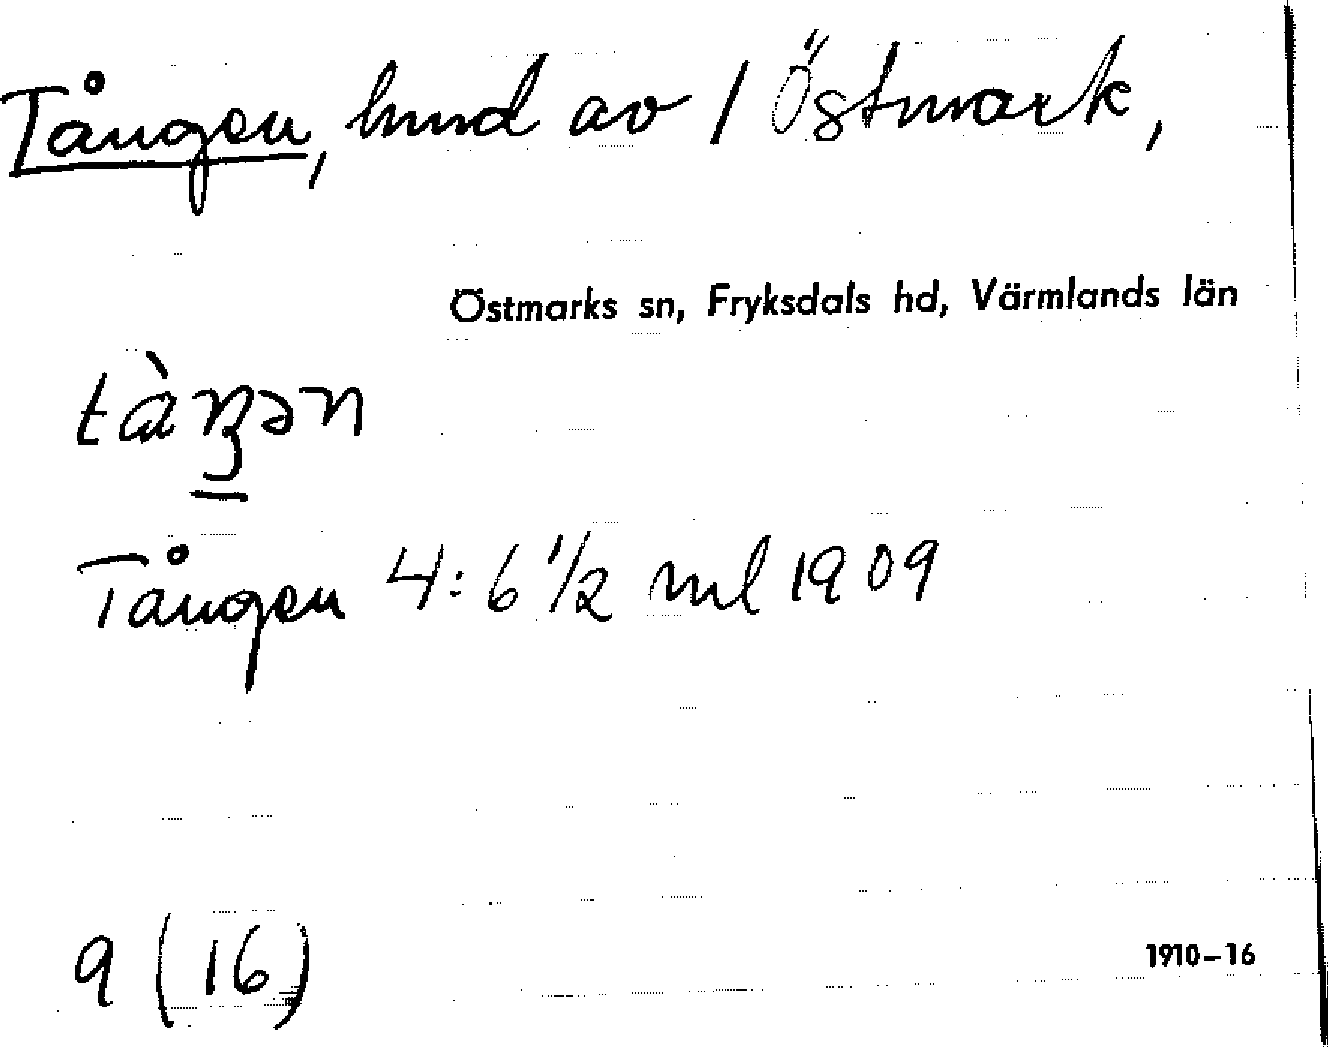 Tången, hmd av 1 Östmark,
Östmarks sn, Fryksdals hd, Värmlands län
Tången 4: 6 1/2 ml 1909
9 (16)
1910–16